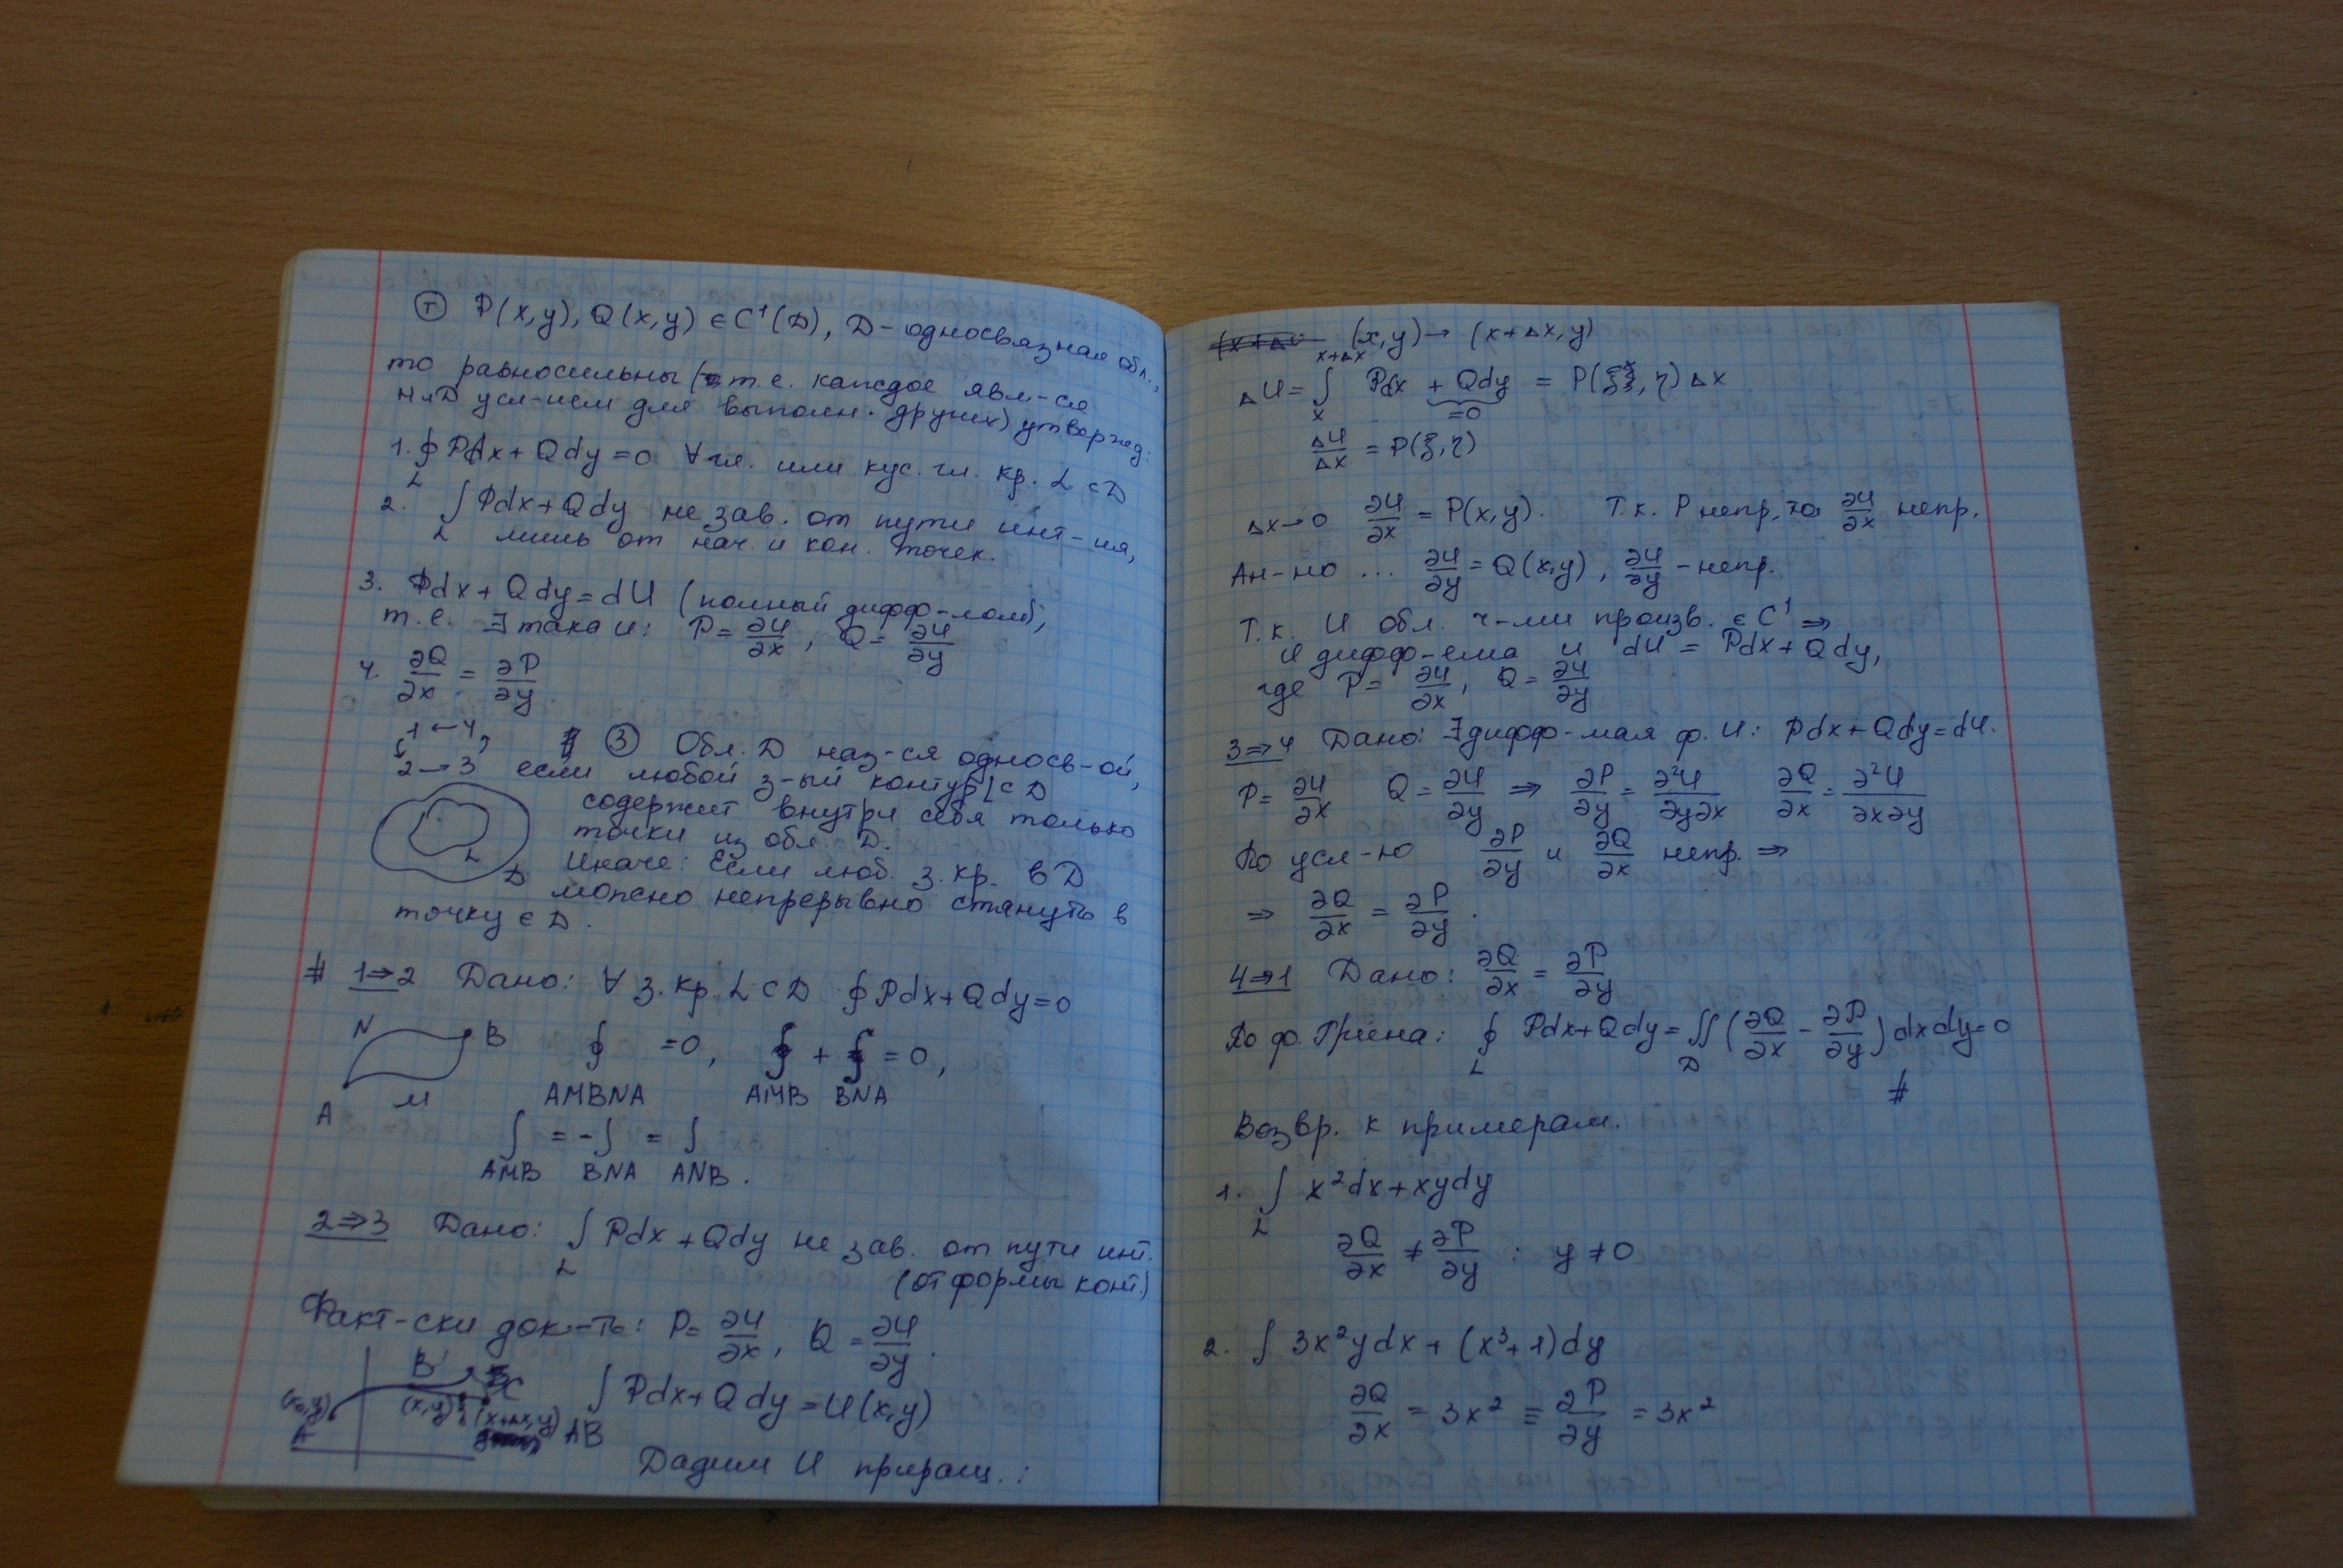 Ⓣ P(x,y), Q(x,y) ∈ C¹(D), D – односвязная обл.,
то равносильны (т.е. каждое явл-ся
НиД усл-ием для выполн. других) утвержд:
1. ∮ Pdx + Qdy = 0 ∀ гл. или кус. гл. кр. L ⊂ D
L
2. ∫ Pdx + Qdy не зав. от пути инт-ия,
L лишь от нач. и кон. точек.
3. Pdx + Qdy = dU (полный дифф-лом),
т.е. ∃ така U: P = ∂U/∂x, Q = ∂U/∂y
4. ∂Q/∂x = ∂P/∂y
1 ← 4
2 → 3
③ Обл. D наз-ся односв-ой,
если любой з-ый контур L ⊂ D
содержит внутри себя только
точки из обл. D.
L
D
Иначе: Если люб. з. кр. в D
можно непрерывно стянуть в
точку ∈ D.
# 1⇒2 Дано: ∀ з. кр. L ⊂ D ∮ Pdx + Qdy = 0
N B
A M
∮ = 0, ∫ + ∫ = 0,
AMBNA AMB BNA
∫ = -∫ = ∫
AMB BNA ANB.
2⇒3 Дано: ∫ Pdx + Qdy не зав. от пути инт.
L (от формы конт.)
Факт-ски док-ть: P = ∂U/∂x, Q = ∂U/∂y.
B C
(x₀,y) (x,y) (x+Δx,y)
A
∫ Pdx + Qdy = U(x,y)
AB
Дадим U приращ.:
(x,y) → (x+Δx,y)
x+Δx
ΔU = ∫ Pdx + Qdy = P(ξ, η) Δx
x =0
ΔU/Δx = P(ξ,η)
Δx→0 ∂U/∂x = P(x,y). Т.к. P непр, то ∂U/∂x непр.
Ан-но ... ∂U/∂y = Q(x,y), ∂U/∂y – непр.
Т.к. U обл. ч-ми произв. ∈ C¹ ⇒
U дифф-ема и dU = Pdx + Qdy,
где P = ∂U/∂x, Q = ∂U/∂y
3⇒4 Дано: ∃ дифф-мая ф. U: Pdx + Qdy = dU.
P = ∂U/∂x Q = ∂U/∂y ⇒ ∂P/∂y = ∂²U/∂y∂x ∂Q/∂x = ∂²U/∂x∂y
По усл-ю ∂P/∂y и ∂Q/∂x непр. ⇒
⇒ ∂Q/∂x = ∂P/∂y.
4⇒1 Дано: ∂Q/∂x = ∂P/∂y
По ф. Грина: ∮ Pdx + Qdy = ∬ (∂Q/∂x − ∂P/∂y) dxdy = 0
L D
#
Возвр. к примерам.
1. ∫ x²dx + xydy
L
∂Q/∂x ≠ ∂P/∂y : y ≠ 0
2. ∫ 3x²ydx + (x³+1)dy
∂Q/∂x = 3x² ≡ ∂P/∂y = 3x²